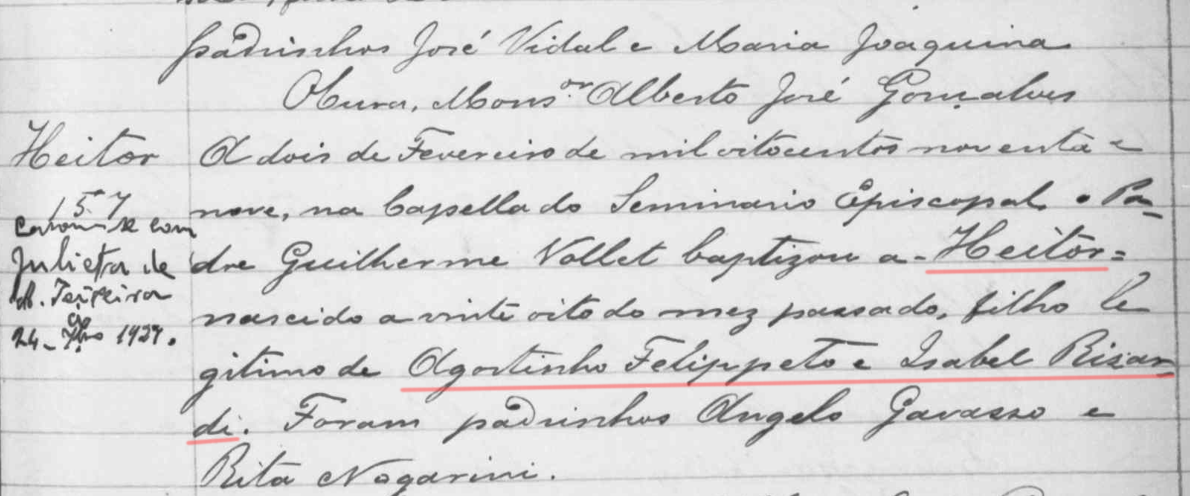 padrinhos José Vidal e Maria Joaquina
O cura, Mons.or Alberto José Gonçalves
Heitor
157
casou-se com
Julieta de
M. Teixeira
24 1927.
A dois de Fevereiro de mil oitocentos noventa e
nove, na Capella do Seminario Episcopal, o Pa-
dre Guilherme Vollet baptizou a - Heitor =
nascido a vinte oito do mez passado, filho le
gitimo de Agostinho Felippeto e Isabel Rizar
di. Foram padrinhos Angelo Gavasso e
Rita Nogarini.